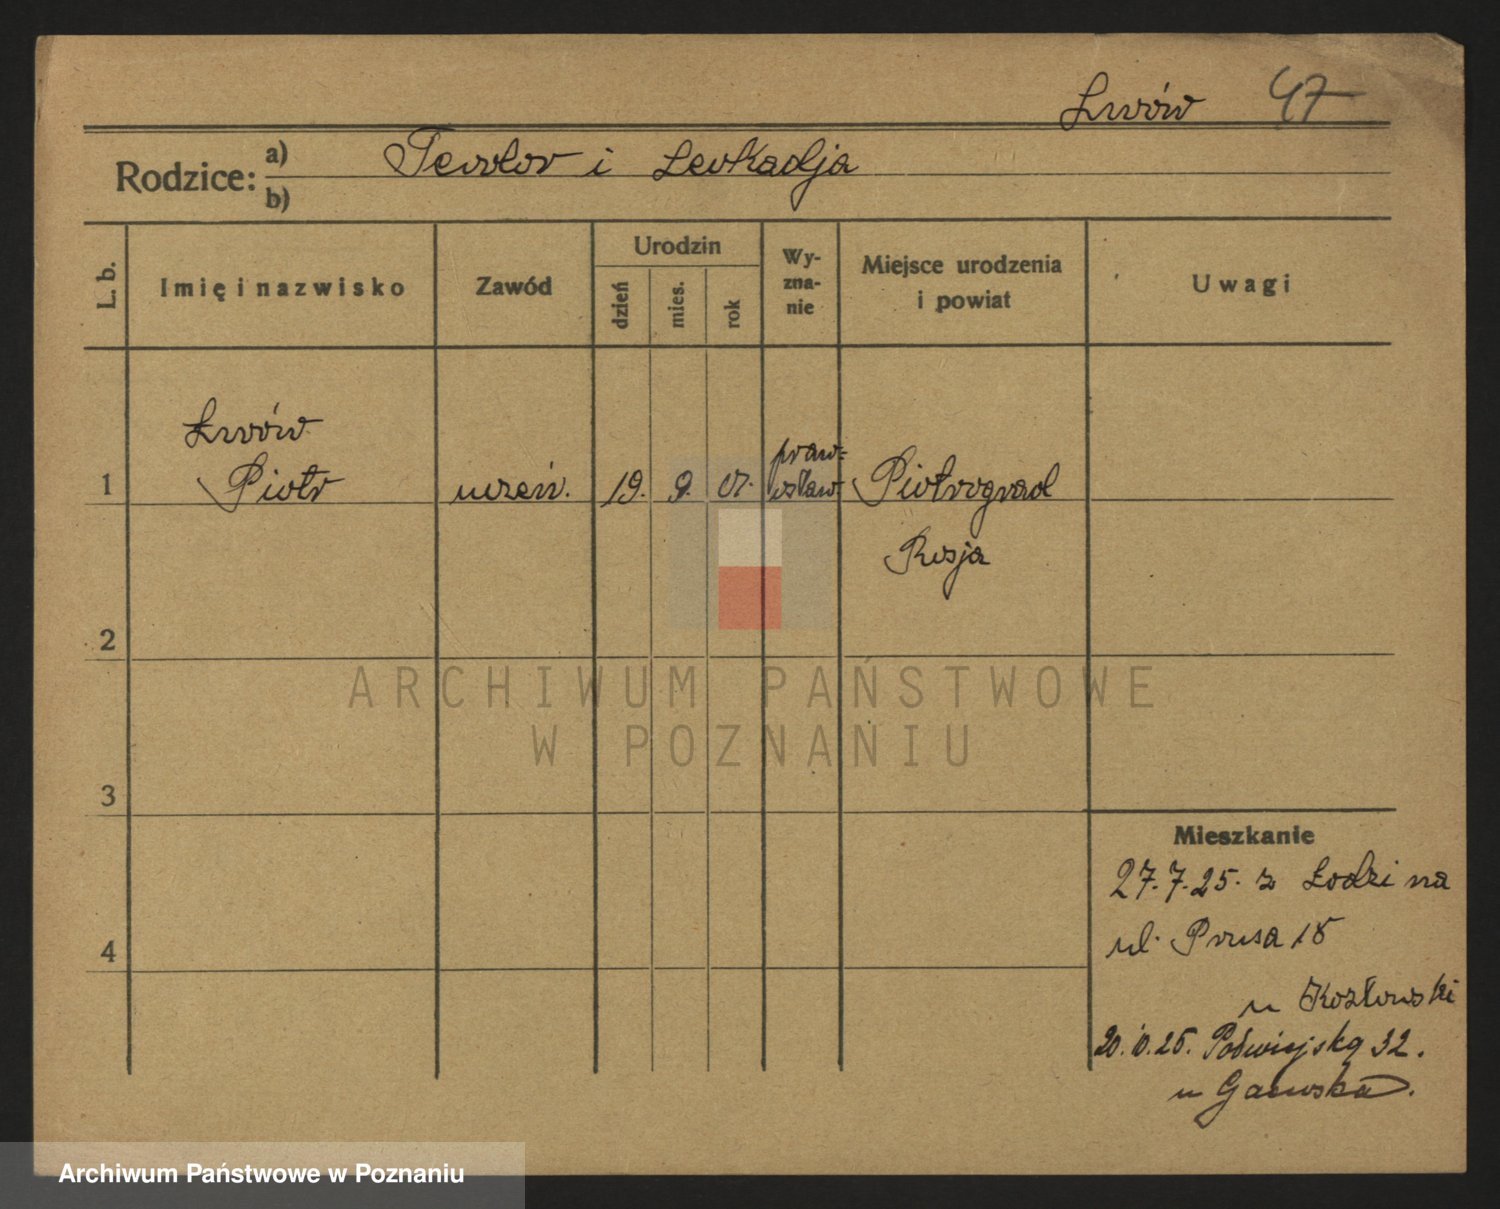 Lwów 47
Rodzice: a) Teodor i Leokadja
b)
L. b. Imię i nazwisko Zawód Urodzin dzień mies. rok Wy-zna-nie Miejsce urodzenia i powiat Uwagi
Lwów
1 Piotr uczeń. 19. 9. 07. praw=osław Piotrogrod
Rosja
2
3
4
Mieszkanie
27.7.25. z Łodzi na
ul. Prusa 18
u Kozłowski
20.10.25. Podwiejską 32.
u
ARCHIWUM PAŃSTWOWE
W POZNANIU
Archiwum Państwowe w Poznaniu